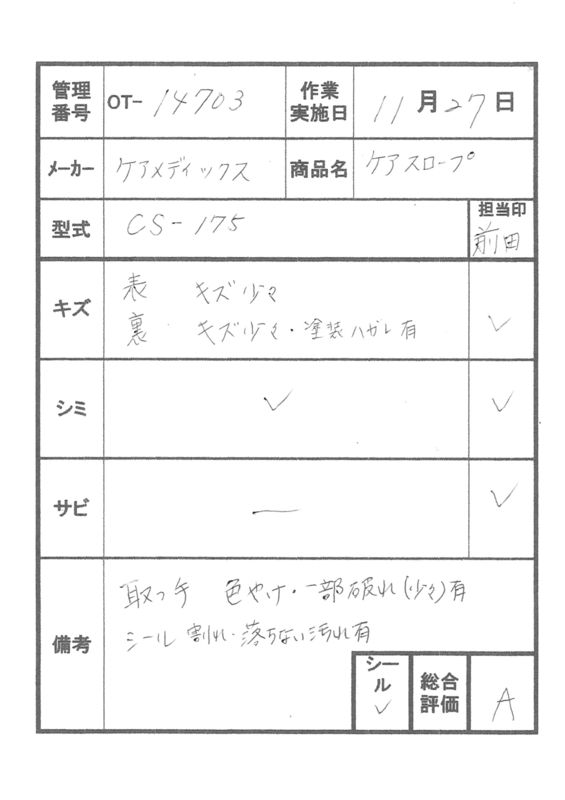 管理番号 OT- 14703 作業実施日 11月27日
メーカー ケアメディックス 商品名 ケアスロープ
型式 CS-175 担当印 前田
キズ 表 キズ少々
裏 キズ少々・塗装ハガレ有 ✓
シミ ✓ ✓
サビ — ✓
備考 取っ手 色やけ・一部破れ(少々)有
シール割れ・落ちない汚れ有
シール ✓ 総合評価 A